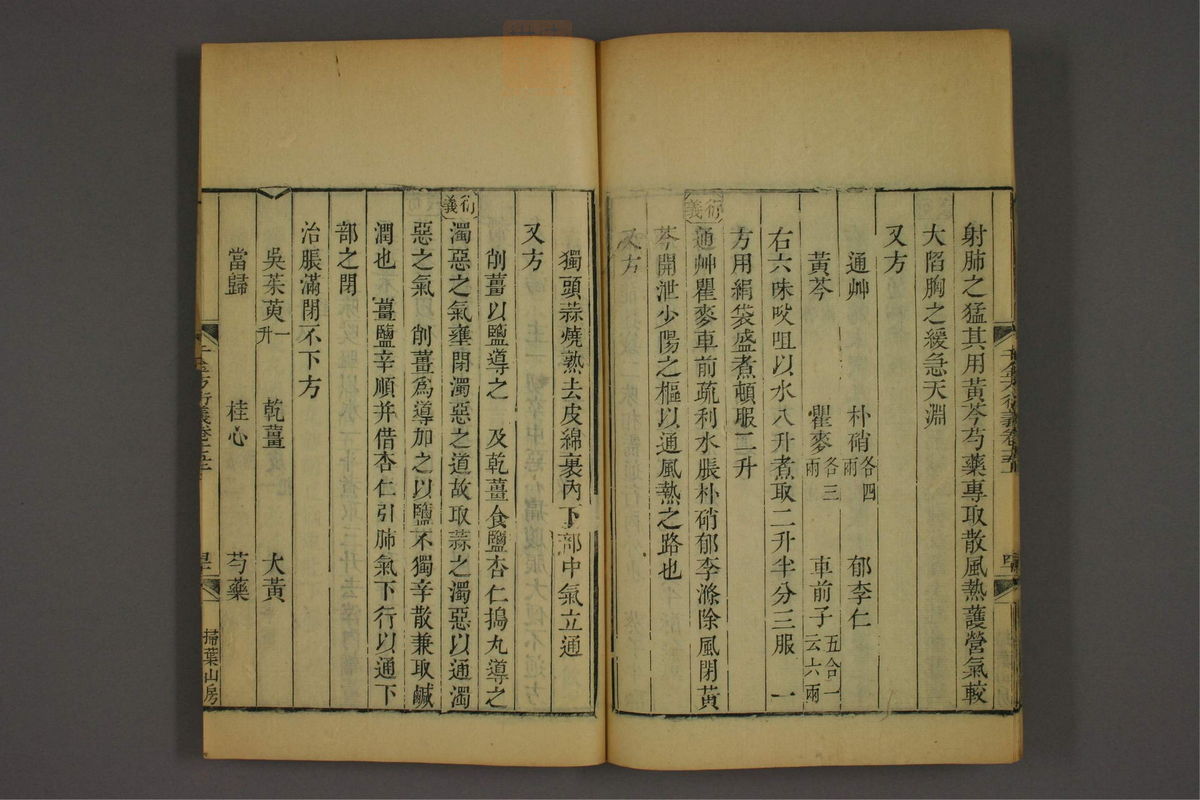 射肺之猛其用黃芩芍藥專取散風熱護營氣較
大陷胸之緩急天淵
又方
通艸　朴硝各四兩　郁李仁
黃芩　瞿麥各三兩　車前子五合一云六兩
右六味㕮咀以水八升煮取二升半分三服　一
方用絹袋盛煮頓服二升
衍義
通艸瞿麥車前疏利水脹朴硝郁李滌除風閉黃
芩開泄少陽之樞以通風熱之路也
又方
獨頭蒜燒熟去皮綿裹內下部中氣立通
又方
削薑以鹽導之　及乾薑食鹽杏仁搗丸導之
衍義
濁惡之氣壅閉濁惡之道故取蒜之濁惡以通濁
惡之氣　削薑為導加之以鹽不獨辛散兼取鹹
潤也　薑鹽辛順并借杏仁引肺氣下行以通下
部之閉
治脹滿閉不下方
吳茱萸一升　乾薑　大黃
當歸　桂心　芍藥
千金方衍義卷十五
掃葉山房